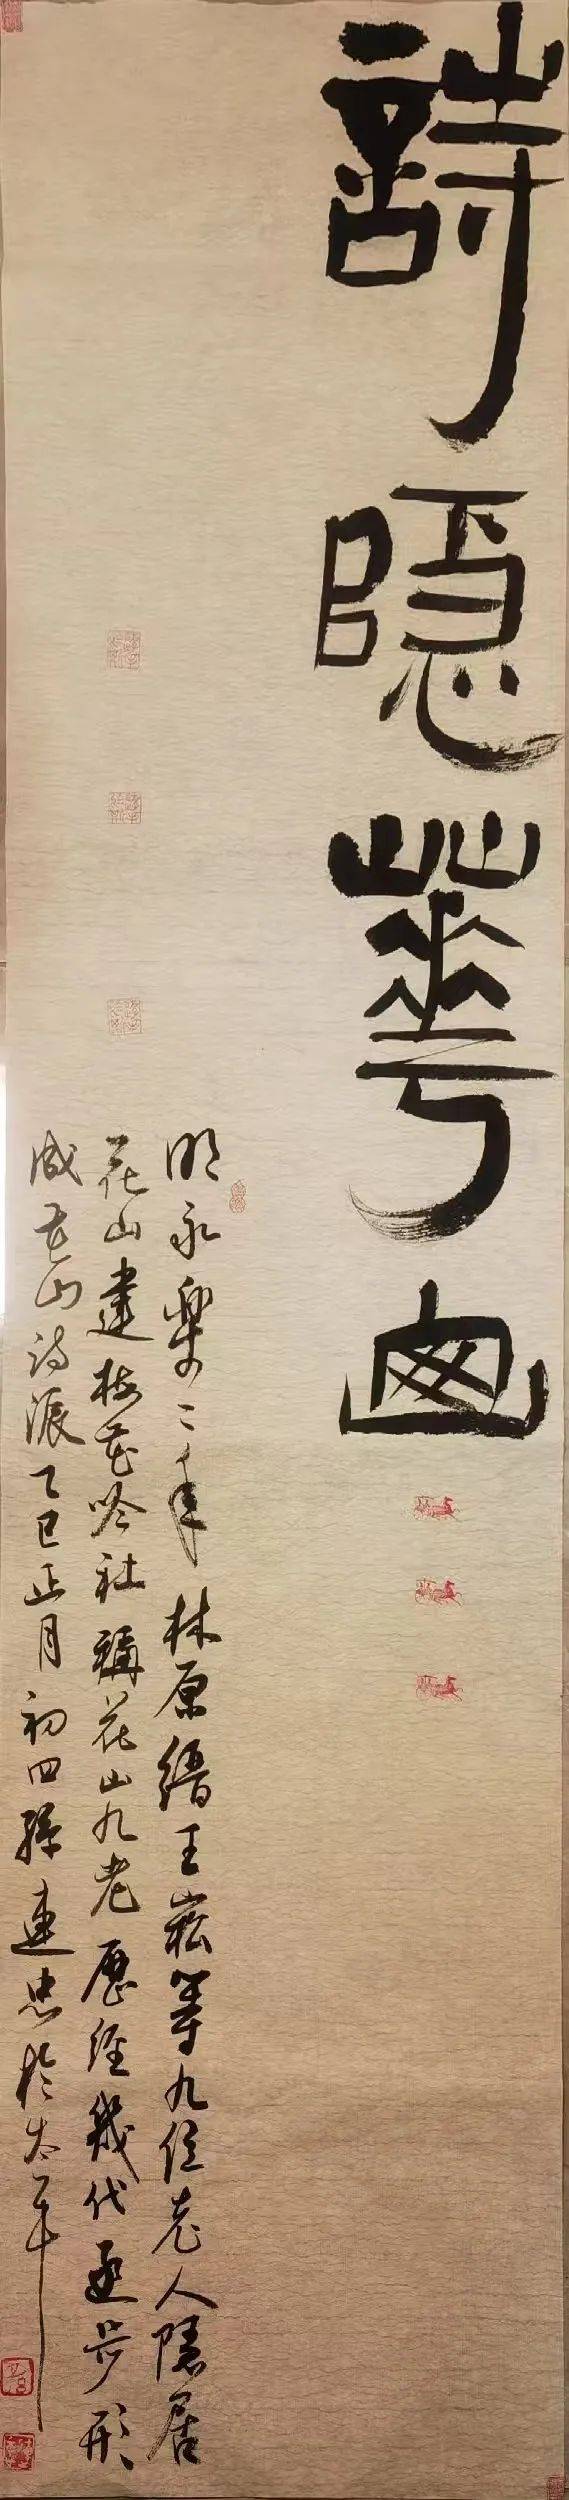 詩隱華山
明永樂二年林原缙王崧等九位老人隱居
花山建梅花吟社稱花山九老歷經幾代逐步形
成花山诗派乙巳正月初四孫連忠於太平